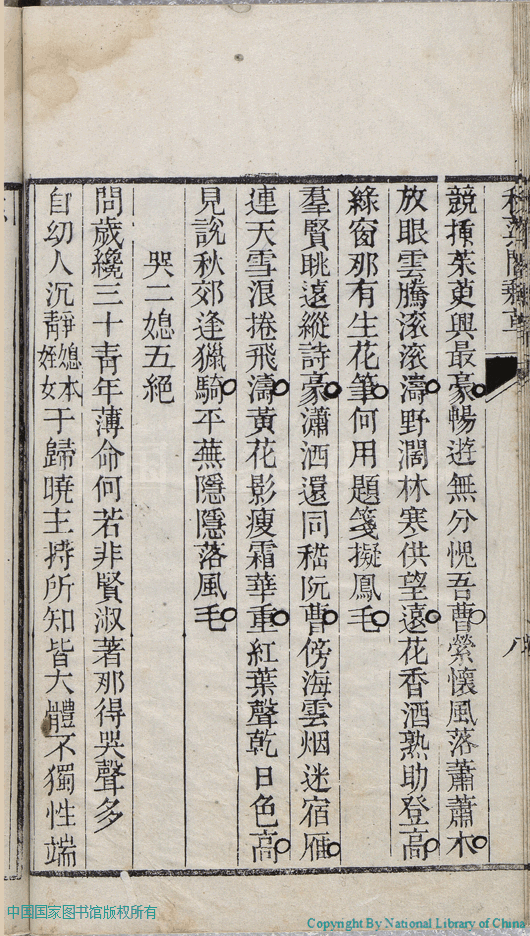 競揷茱萸興最豪暢遊無分愧吾曹縈懷風落蕭蕭木
放眼雲騰滚滚濤野濶林寒供望遠花香酒熟助登高
綠窗那有生花筆何用題箋擬鳳毛
羣賢眺遠縱詩豪瀟洒還同嵇阮曹傍海雲烟迷宿雁
連天雪浪捲飛濤黃花影瘦霜華重紅葉聲乾日色高
見說秋郊逢獵騎平蕪隱隱落風毛
哭二媳五絕
問歲纔三十靑年薄命何若非賢淑著那得哭聲多
自幼人沉靜媳本姪女于歸曉主持所知皆大體不獨性端
八
中国国家图书馆版权所有
Copyright By National Library of China